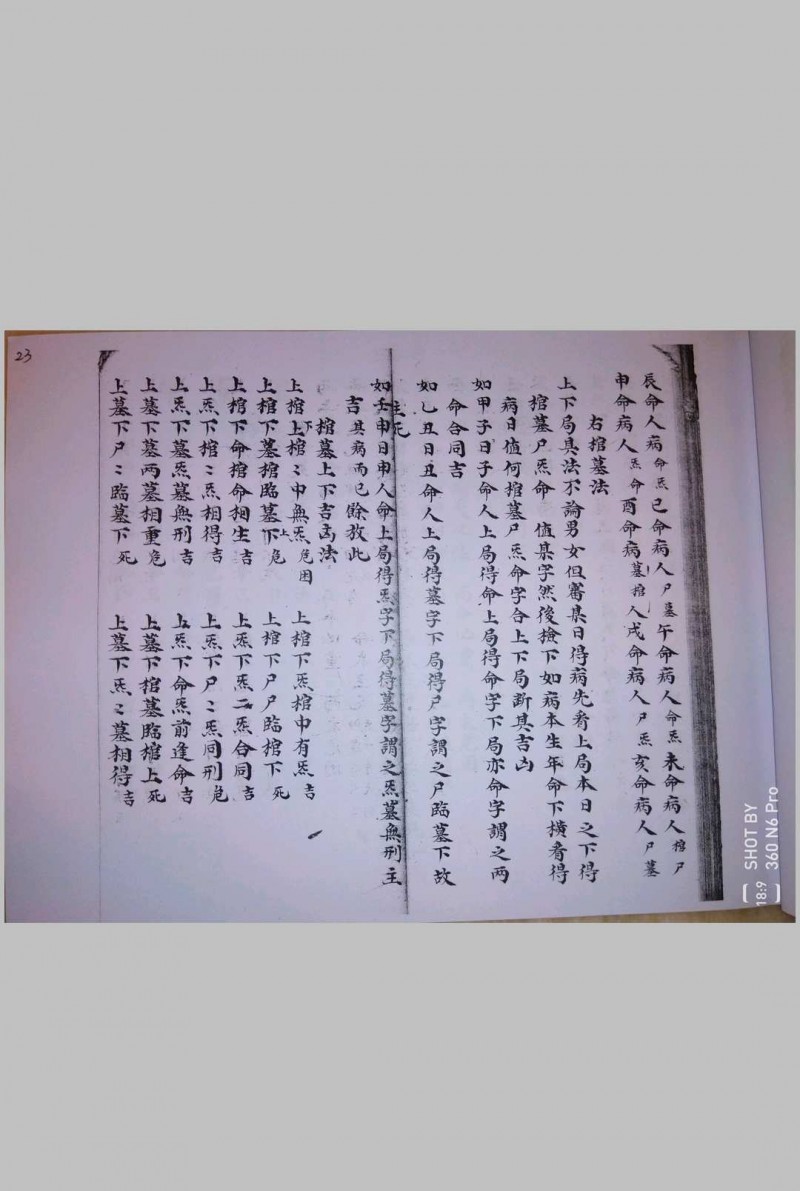 辰命人病命炁巳命病人尸墓午命病人命炁未命病人棺尸
申命病人炁命酉命病墓棺人戌命病人尸炁亥命病人尸墓
右棺墓法
上下局具法不論男女但審某日得病先看上局本日之下得
棺墓尸炁命值某字然後撿下如病本生年命下橫看得
病日值何棺墓尸炁命字合上下局斷其吉凶
如甲子日子命人上局得命上局得命字下局亦命字謂之两
命合同吉
如乙丑日丑命人上局得墓字下局得尸字謂之尸臨墓下故
主死
如壬申日申人命上局得炁字下局得墓字謂之炁墓無刑主
吉其病而已餘放此
棺墓上下吉凶法
上棺上下棺〻中無炁危困 上棺下炁棺中有炁吉
上棺下墓棺臨墓下上危 上棺下尸尸臨棺下死
上棺下命棺命相生吉 上炁下炁二炁合同吉
上炁下棺〻炁相得吉 上炁下尸〻炁同刑危
上炁下墓炁墓無刑吉 上炁下命炁前逢命吉
上墓下墓两墓相重危 上墓下棺墓臨棺上死
上墓下尸〻臨墓下死 上墓下炁〻墓相得吉
23
SHOT BY
360 N6 Pro
18:9